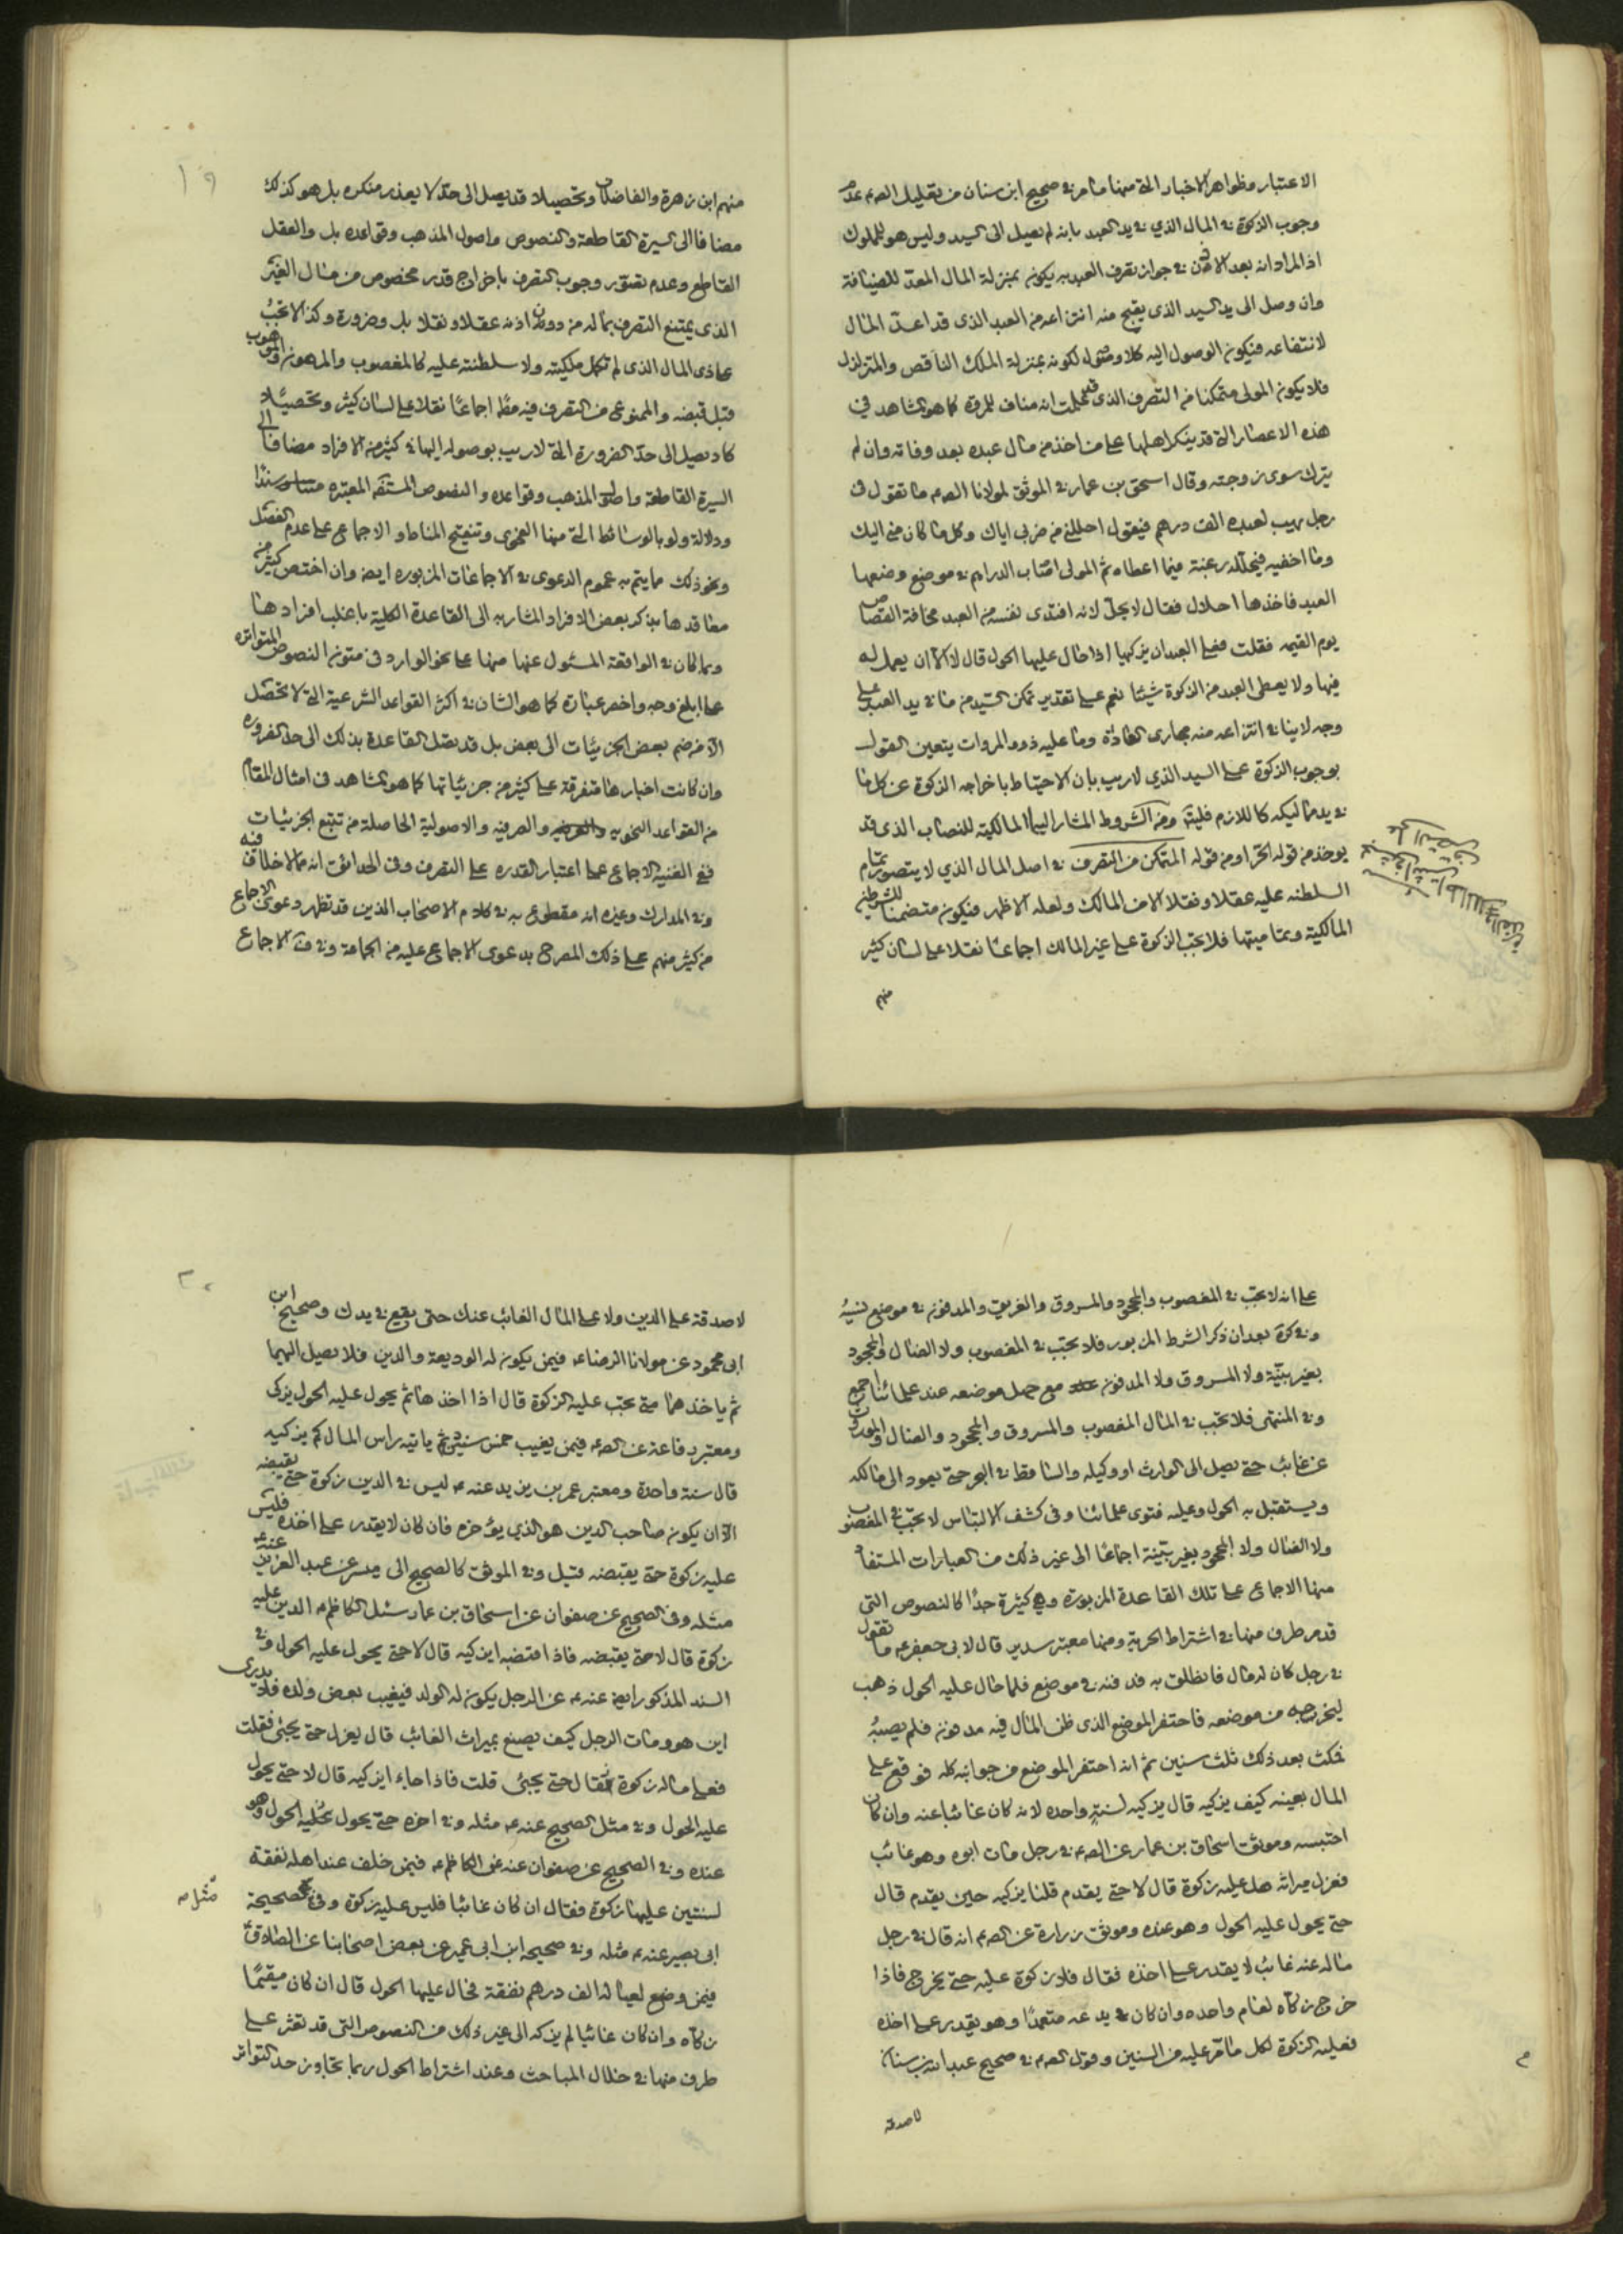 الاعتبار وظواهر الاخبار التي منها ما مر في صحيح ابن سنان من تعليل الصم عدم
وجوب الزكوة في المال الذي في يد العبد بانه لم يصل الى السيد وليس هو للمملوك
اذ المراد انه بعد الاذن في جواز تصرف العبد به يكون بمنزلة المال المعدّ للضيافة
وان وصل الى يد السيد الذي يقبح منه انتزاعه من العبد الذي قد اعدّ المال
لانتفاعه فيكون الوصول اليه كلا وصول لكونه بمنزلة الملك الناقص والمتزلزل
فلا يكون المولى متمكنا من التصرف الذي علمت انه مناف للرق كما هو المشاهد في
هذه الاعصار التي قد ينكر اهلها على من اخذ من مال عبده بعد وفاته وان لم
يترك سوى زوجته وقال اسحق بن عمار في الموثق لمولانا الصم ما تقول في
رجل يهب لعبده الف درهم فيقول احللني من ضربي اياك وكل ما كان مني اليك
وما اخفيه فيحلله رغبة فيما اعطاه ثم المولى اصاب الدراهم في موضع وضعها
العبد فاخذها احلال فقال لا يحل لانه افتدى نفسه من العبد مخافة القصاص
يوم القيمه فقلت فعلى العبد ان يزكيها اذا حال عليها الحول قال لا الا ان يعمل له
فيها ولا يعطى العبد من الزكوة شيئا نعم على تقدير تمكن السيد من ما في يد العبد على
وجه لا ينافي انتزاعه منه مجاري العادة وما عليه ذوو المروات يتعين القول
بوجوب الزكوة على السيد الذي لا ريب بان الاحتياط باخراجه الزكوة عن كل ما
في يد مماليكه كاللازم فليته ومن الشروط المشار اليها المالكية للنصاب الذي قد
يوخذ من قوله الحر او من قوله المتمكن من التصرف في اصل المال الذي لا يتصور تمام
السلطنه عليه عقلا ونقلا الا من المالك ولعله الاظهر فيكون متضمنا لشرطية
المالكية وتماميتها فلا تجب الزكوة على غير المالك اجماعا نقلا على لسان كثير
منهم
١٩
منهم ابن زهرة والفاضلان وتحصيلا قد يصل الى حدّ لا يعذر منكره بل هو كذلك
مضافا الى السيرة القاطعة والنصوص واصول المذهب وقواعده بل والعقل
القاطع وعدم تصوّر وجوب التصرف باخراج قدر مخصوص من مال الغير
الذي يمتنع التصرف بماله من دون اذنه عقلا ونقلا بل وضرورة وكذا لا تجب
على ذي المال الذي لم تكمل ملكيته ولا سلطنته عليه كالمغصوب والمرهون والموهوب
قبل قبضه والممنوع من التصرف فيه مطا اجماعًا نقلا على لسان كثير وتحصيلا
كاد يصل الى حدّ الضرورة التي لا ريب بوصوله اليها في كثير من الافراد مضافا الى
السيرة القاطعة واصول المذهب وقواعده والنصوص المستفه المعتبره سندًا
ودلالة ولو بالوسائط التي منها الفحوى وتنقيح المناط والاجماع على عدم الفصل
ونحو ذلك مما يتم به عموم الدعوى في الاجماعات المزبوره ايضه وان اختص كثير من
معاقدها بذكر بعض الافراد المشار به الى القاعدة الكلية باغلب افرادها
وبما كان في الواقعة المسئول عنها منها على نحو الوارد في متون النصوص المتواتره
على ابلغ وجه واخصر عبارة كما هو الشان في اكثر القواعد الشرعية التي لا تحصل
الا من ضم بعض الجزئيات الى بعض بل قد تصل القاعدة بذلك الى حد الضروره
وان كانت اخبارها متفرقة على كثير من جزئياتها كما هو المشاهد في امثال المقام
من القواعد النحويه والصرفيه والاصولية الحاصلة من تتبع الجزئيات
ففي الغنيه الاجماع على اعتبار القدره على التصرف وفي الحدائق انه مما لا خلاف فيه
وفي المدارك وغيره انه مقطوع به في كلام الاصحاب الذين قد تظهر دعوى الاجماع
من كثير منهم على ذلك المصرح بدعوى الاجماع عليه من الجماعة وفي ف الاجماع
على انه لا تجب في المغصوب والمجحود والمسروق والغريق والمدفون في موضع نسيه
وفي كرة بعد ان ذكر الشرط المزبور فلا تجب في المغصوب ولا الضال والمجحود
بغير بينة ولا المسروق ولا المدفون مع جهل موضعه عند علمائنا اجمع
وفي المنتهى فلا تجب في المال المغصوب والمسروق والمجحود والضال والموروث
عن غائب حتى يصل الى الوارث او وكيله والساقط في البحر حتى يعود الى مالكه
ويستقبل به الحول وعليه فتوى علمائنا وفي كشف الالتباس لا تجب في المغصوب
ولا الضال ولا المجحود بغير بينة اجماعًا الى غير ذلك من العبارات المستفاد
منها الاجماع على تلك القاعدة المزبورة وهي كثيرة جدًا كالنصوص التي
قد مر طرف منها في اشتراط الحرية ومنها معتبر سدير قال لابي جعفر عم ما تقول
في رجل كان له مال فانطلق به فدفنه في موضع فلما حال عليه الحول ذهب
ليخرجه من موضعه فاحتفر الموضع الذي ظن المال فيه مدفون فلم يصبه
فمكث بعد ذلك ثلث سنين ثم انه احتفر الموضع من جوانبه كله فوقع على
المال بعينه كيف يزكيه قال يزكيه لسنة واحده لانه كان غائبا عنه وان كان
احتبسه وموثق اسحاق بن عمار عن الصم في رجل مات ابوه وهو غائب
فعزل ميراثه هل عليه زكوة قال لا حتى يقدم قلنا يزكيه حين يقدم قال
حتى يحول عليه الحول وهو عنده وموثق زرارة عن الصم انه قال في رجل
ماله عنه غائب لا يقدر على اخذه فقال فلا زكوة عليه حتى يخرج فاذا
خرج زكاه لعام واحده وان كان يدعه متعمدًا وهو يقدر على اخذه
فعليه الزكوة لكل ما مر عليه من السنين وقول الصم في صحيح عبدالله بن سنان
لا صدقة
٢٠
لا صدقة على الدين ولا على المال الغائب عنك حتى يقع في يدك وصحيح ابن
ابي محمود عن مولانا الرضا عم فيمن يكون له الوديعة والدين فلا يصل اليهما
ثم ياخذهما متى تجب عليه الزكوة قال اذا اخذهما ثم يحول عليه الحول يزكى
ومعتبر رفاعة عن الصم فيمن يغيب خمس سنين ثم ياتيه راس المال كم يزكيه
قال سنة واحدة ومعتبر عمر بن يزيد عنه عم ليس في الدين زكوة حتى يقبضه
الا ان يكون صاحب الدين هو الذي يؤخره فان كان لا يقدر على اخذه فليس
عليه زكوة حتى يقبضه قيل وفي الموثق كالصحيح الى ميسر عن عبد العزيز عنه
مثله وفي الصحيح عن صفوان عن اسحاق بن عمار سئل الكاظم عم الدين عليه
زكوة قال لا حتى يقبضه فاذا اقتضبه ايزكيه قال لا حتى يحول عليه الحول وفي
السند المذكور ايضا عنه عم عن الرجل يكون له الولد فيغيب بعض ولده فلا يدرى
اين هو ومات الرجل كيف يصنع بميراث الغائب قال يعزل حتى يجئى فقلت
فعلى ماله زكوة فقال حتى يجئى قلت فاذا جاء ايزكيه قال لا حتى يحول
عليه الحول وفي مثل الصحيح عنه عم مثله وفي اخره حتى يحول عليه الحول وهو
عنده وفي الصحيح عن صفوان عنه عن الكاظم عم فيمن خلف عند اهله نفقة
لسنتين عليها زكوة فقال ان كان غائبا فليس عليه زكوة وفي صحيحة
ابي بصير عنه عم مثله وفي صحيحه ابن ابي عمير عن بعض اصحابنا عن الصادق
فيمن وضع لعياله الف درهم نفقة فحال عليها الحول قال ان كان مقيمًا
زكاه وان كان غائبا لم يزكه الى غير ذلك من النصوص التي قد تعثر على
طرف منها في خلال المباحث وعند اشتراط الحول ربما تجاوز حد التواتر